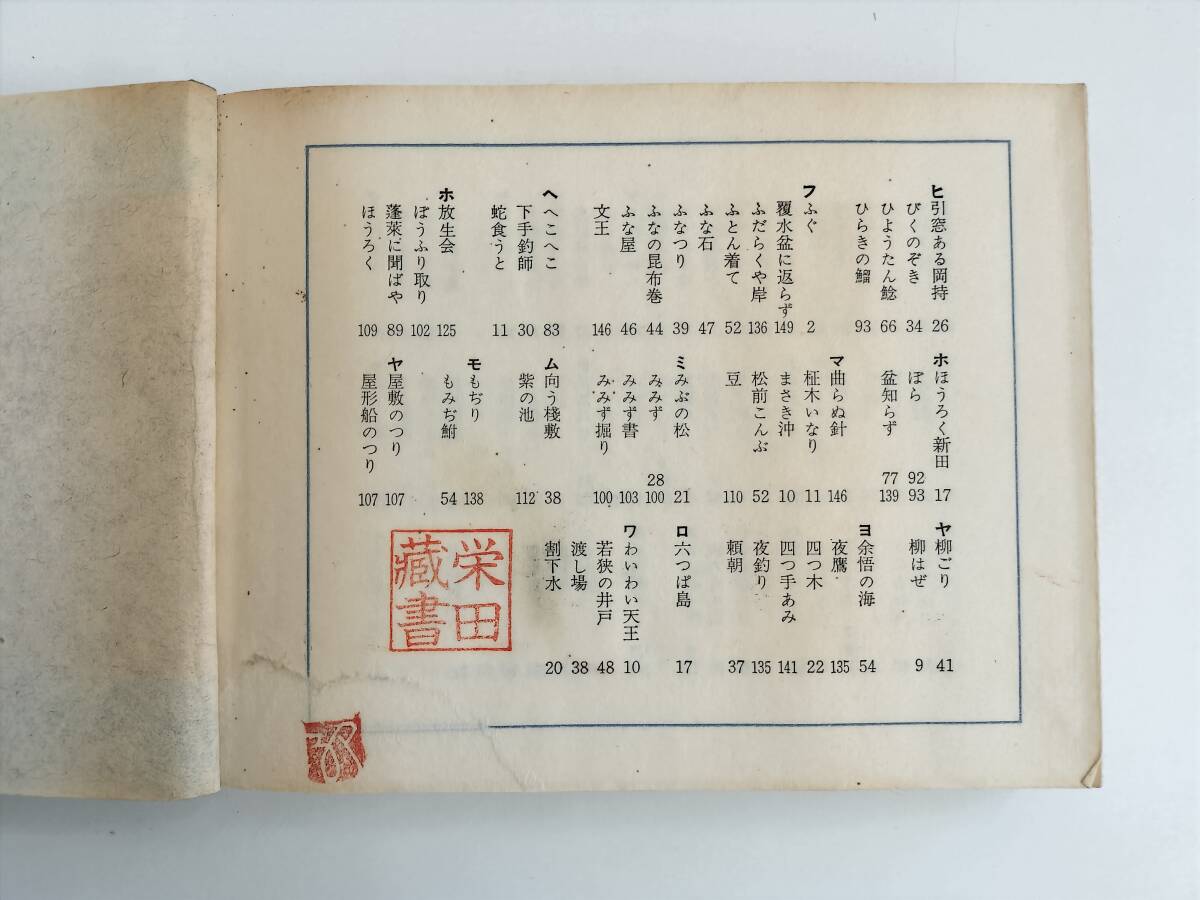 ヒ 引窓ある岡持 26
びくのぞき 34
ひようたん鯰 66
ひらきの鰡 93
フ ふぐ 2
覆水盆に返らず 149
ふだらくや岸 136
ふとん着て 52
ふな石 47
ふなつり 39
ふなの昆布巻 44
ふな屋 46
文王 146
ヘ へこへこ 83
下手釣師 30
蛇食うと 11
ホ 放生会 125
ぼうふり取り 102
蓬萊に聞ばや 89
ほうろく 109
ホ ほうろく新田 17
ぼら 92 93
盆知らず 77 139
マ 曲らぬ針 146
柾木いなり 11
まさき沖 10
松前こんぶ 52
豆 110
ミ みぶの松 21
みみず 28 100
みみず書 103
みみず掘り 100
ム 向う棧敷 38
紫の池 112
モ もぢり 138
もみぢ鮒 54
ヤ 屋敷のつり 107
屋形船のつり 107
ヤ 柳ごり 41
柳はぜ 9
ヨ 余悟の海 54
夜鷹 135
四つ木 22
四つ手あみ 141
夜釣り 135
頼朝 37
ロ 六つぱ島 17
ワ わいわい天王 10
若狭の井戸 48
渡し場 38
割下水 20
栄田
藏書